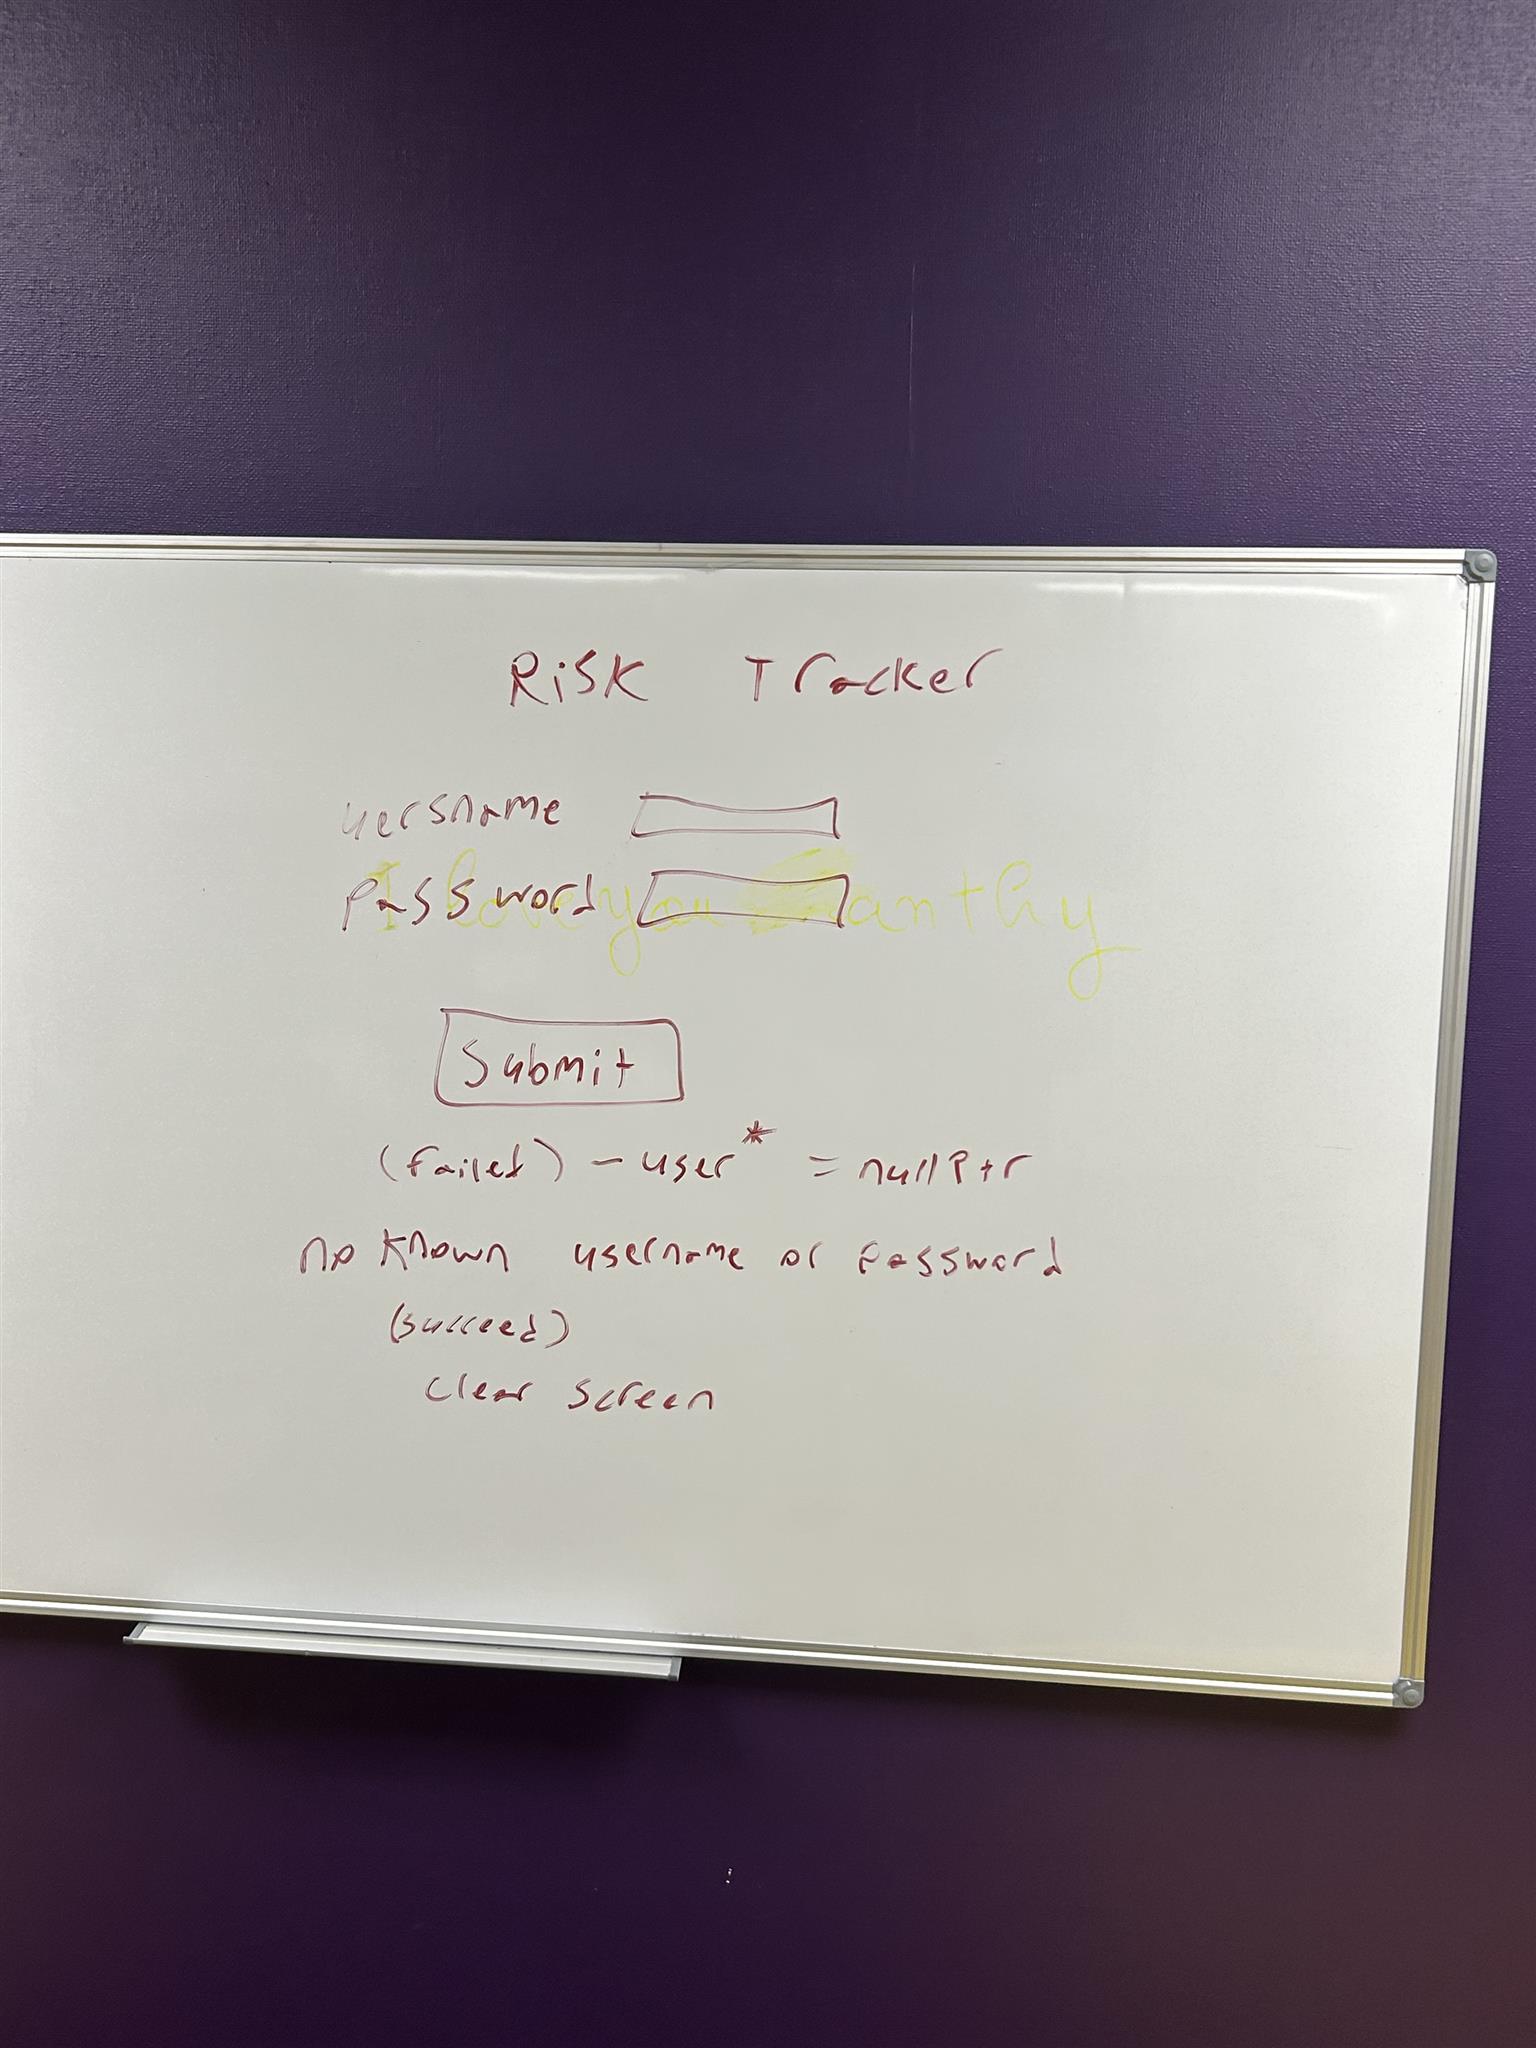 Risk Tracker
uersname
password
I love you anthy
Submit
(failed) - user* = nullptr
no known username or password
(succeed)
clear screen